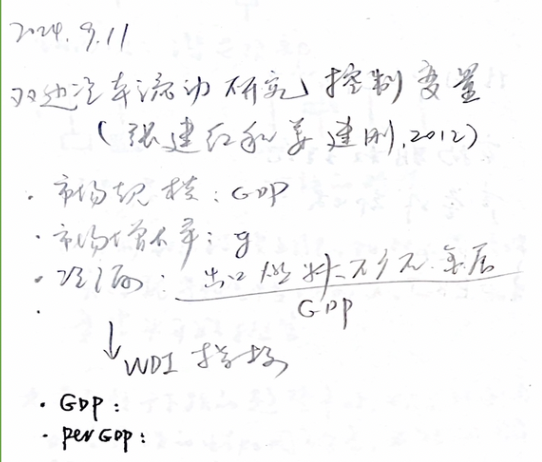 2024.9.11
双边资本流动研究 控制变量
(张建红和姜建刚,2012)
· 市场规模:GDP
· 市场增长率:g
· 资源: 出口燃料、矿石、金属
GDP
·
↓WDI 指标
· GDP:
· perGDP: